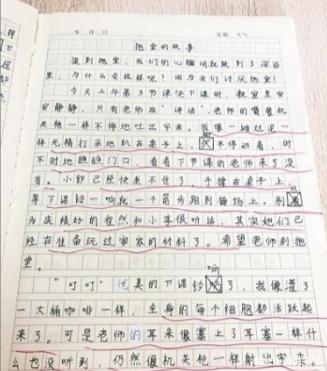 年 月 日 星期 天气
拖堂的故事
说到拖堂，我们的心瞬间就跌到了深谷
里，为什么会这样呢？因为我们讨厌拖堂！
今天上午第3节课快下课时，教室里安
安静静，只有老师在“讲话”，老师的嘴里机
关枪一样不停地吐出字来。我像一滩烂泥一
样无精打采地趴在桌子上，不停动着，时
不时地瞧瞧门口，看看下节课的老师来了没
有。小郭已经快坐不住了，手撑在桌子上，
等下课铃一响就一个箭步跑到操场上，别
为成绩好的程然和小李很听话，其实她们已
经在准备玩过家家的材料了。希望老师别拖
堂。
响
“叮叮”优美的下课铃了，我像灌了
一大桶咖啡一样，全身的每个细胞都活跃起
来了。可是老师的耳朵像塞上了耳塞一样什
么也没听到，仍然像机关枪一样射出字来。